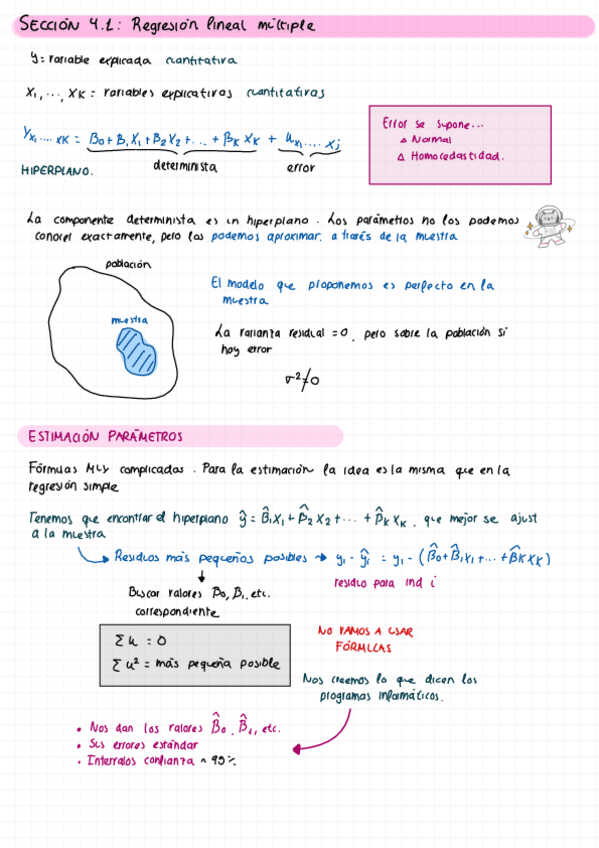 SECCIÓN 4.1: Regresión lineal múltiple
y = variable explicada cuantitativa
X1, ..., XK = variables explicativas cuantitativas
Yx1....xK = B0 + B1X1 + B2X2 + ... + BKXK + ux1....xj
determinista error
HIPERPLANO.
Error se supone...
△ Normal
△ Homocedastidad.
La componente determinista es un hiperplano. Los parámetros no los podemos
conocer exactamente, pero los podemos aproximar. a través de la muestra
población
muestra
El modelo que proponemos es perfecto en la
muestra
La varianza residual = 0, pero sobre la población si
hay error
σ² ≠ 0
ESTIMACIÓN PARÁMETROS
Fórmulas muy complicadas. Para la estimación la idea es la misma que en la
regresión simple
Tenemos que encontrar el hiperplano ŷ = B̂1X1 + B̂2X2 + ... + B̂KXK, que mejor se ajust
a la muestra
Residuos más pequeños posibles → yi - ŷi = yi - (B̂0 + B̂1X1 + ... + B̂KXK)
residuo para ind i
Buscar valores B0, B1, etc.
correspondiente
Σu = 0
Σu² = más pequeña posible
NO VAMOS A USAR
FÓRMULAS
Nos creemos lo que dicen los
programas informáticos.
• Nos dan los valores B̂0, B̂1, etc.
• Sus errores estándar
• Intervalos confianza ~ 95%